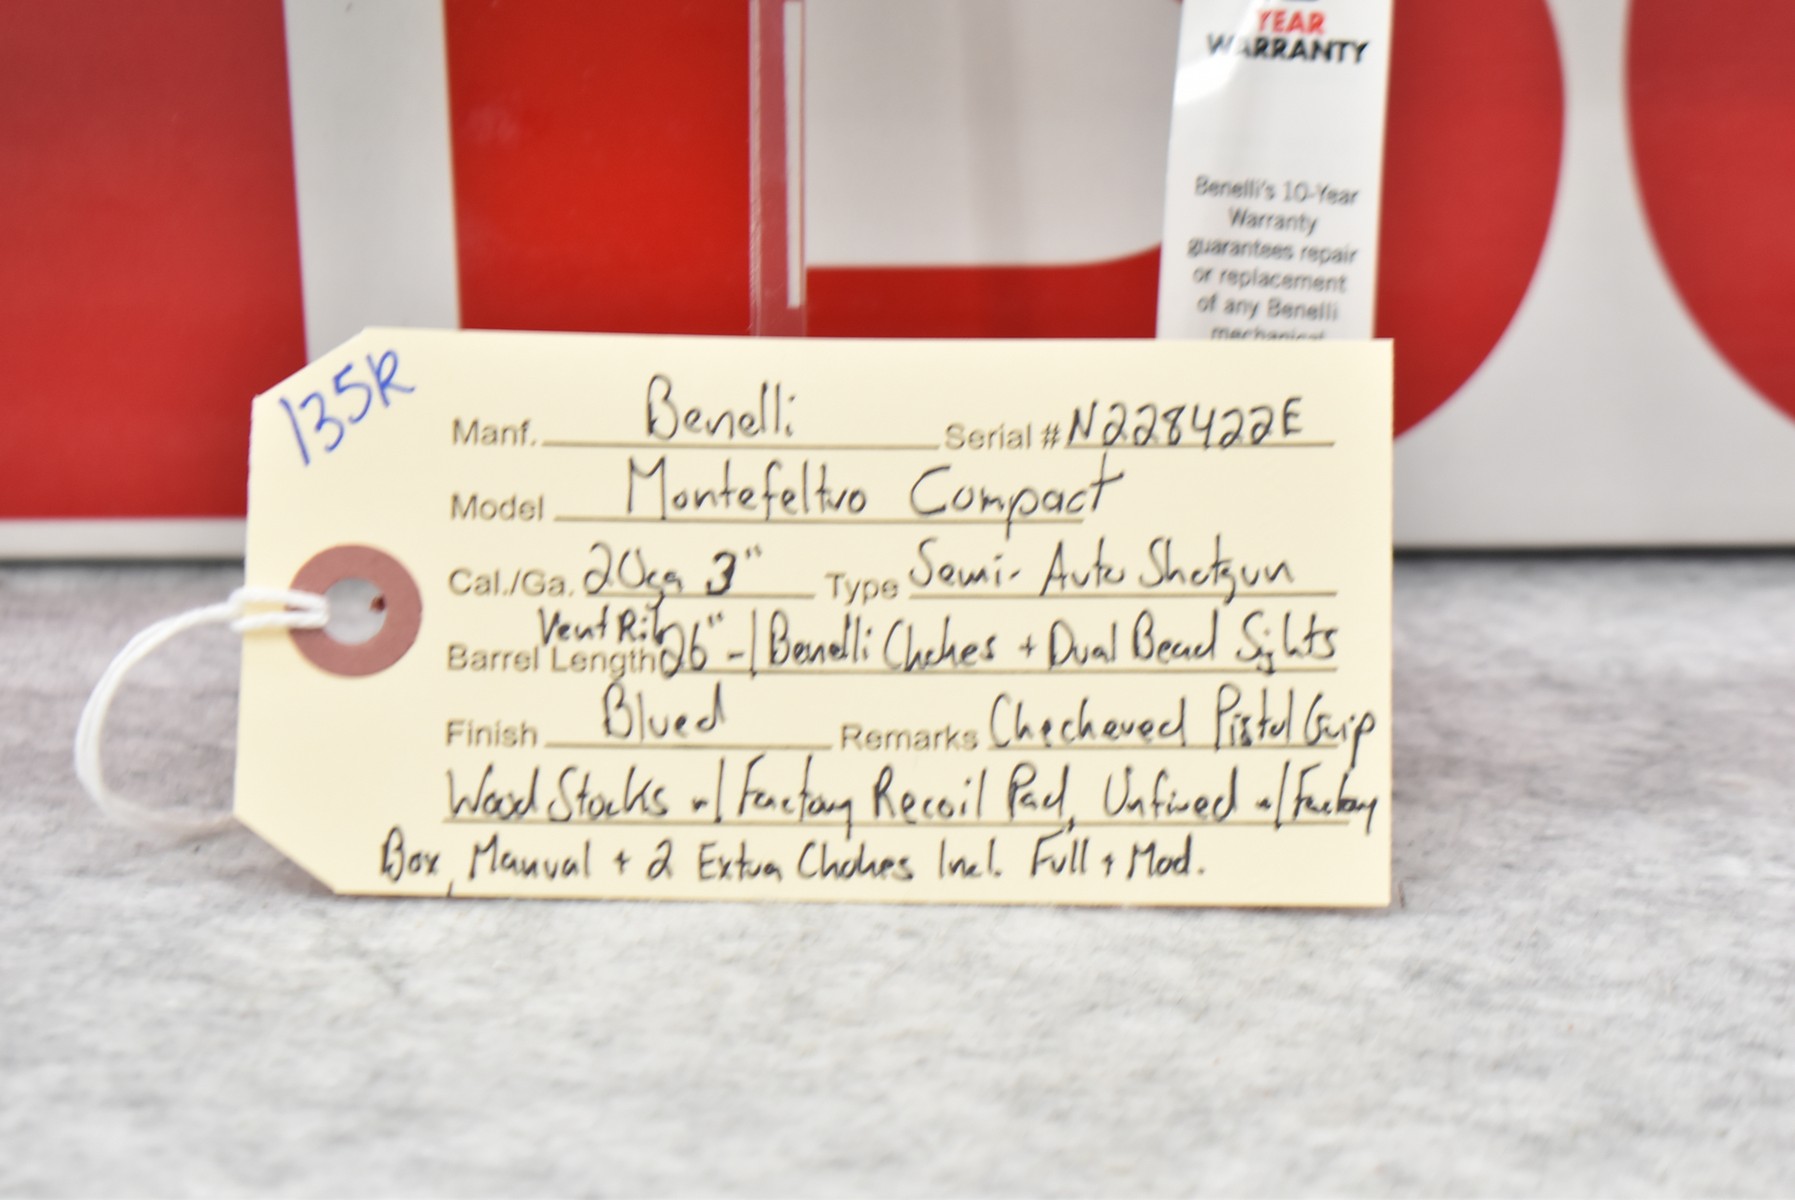 YEAR
WARRANTY
Benelli's 10-Year
Warranty
guarantees repair
or replacement
of any Benelli
mechanical
135R
Manf. Benelli Serial # N228422E
Model Montefeltro Compact
Cal./Ga. 20ga 3" Type Semi-Auto Shotgun
Vent Rib
Barrel Length 26" w/ Benelli Chokes + Dual Bead Sights
Finish Blued Remarks Checkered Pistol Grip
Wood Stocks w/ Factory Recoil Pad, Unfired w/ Factory
Box, Manual + 2 Extra Chokes Incl. Full + Mod.